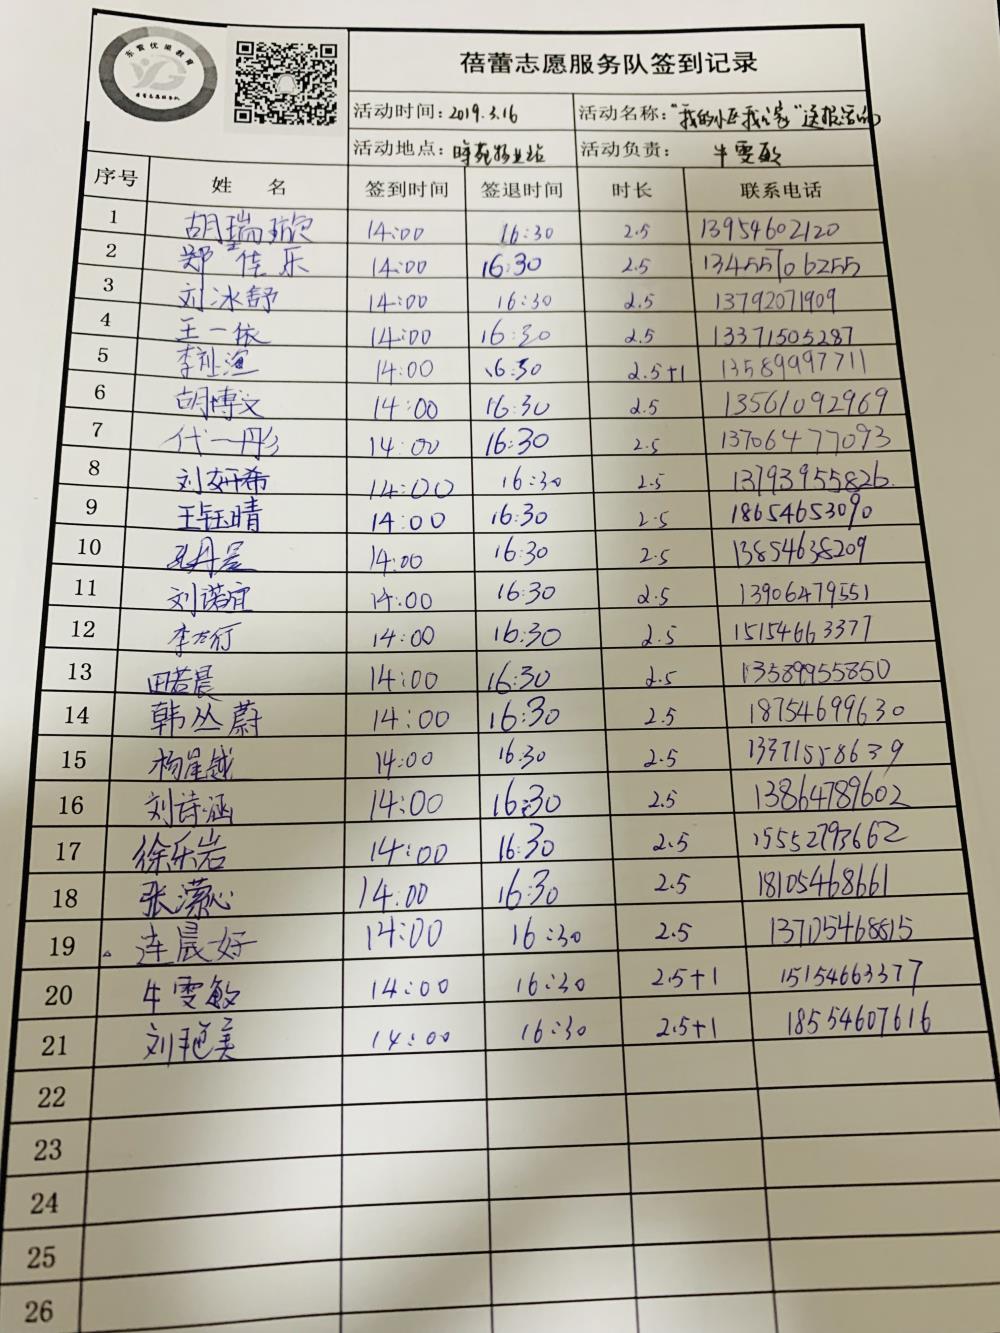 蓓蕾志愿服务队签到记录
活动时间：2019.3.16 活动名称："我的小区我的家"送报活动
活动地点： 物业站 活动负责： 牛雯敏
序号 姓 名 签到时间 签退时间 时长 联系电话
1 胡瑞欣 14:00 16:30 2.5 13954602120
2 郑佳乐 14:00 16:30 2.5 13455706255
3 刘冰舒 14:00 16:30 2.5 13792071909
4 王一依 14:00 16:30 2.5 13371505287
5 李 渲 14:00 16:30 2.5+1 13589997711
6 胡博文 14:00 16:30 2.5 13561092969
7 代一彤 14:00 16:30 2.5 13706477093
8 刘妍希 14:00 16:30 2.5 13793955826
9 王钰晴 14:00 16:30 2.5 18654653090
10 孔丹晨 14:00 16:30 2.5 13854638209
11 刘诺宜 14:00 16:30 2.5 13906479551
12 李 14:00 16:30 2.5 15154663377
13 田若晨 14:00 16:30 2.5 13589955850
14 韩丛蔚 14:00 16:30 2.5 18754699630
15 杨星越 14:00 16:30 2.5 13371558639
16 刘诗涵 14:00 16:30 2.5 13864789602
17 徐乐岩 14:00 16:30 2.5 15552793662
18 张潆心 14:00 16:30 2.5 18105468661
19 连晨好 14:00 16:30 2.5 13705468815
20 牛雯敏 14:00 16:30 2.5+1 15154663377
21 刘艳美 14:00 16:30 2.5+1 18554607616
22
23
24
25
26